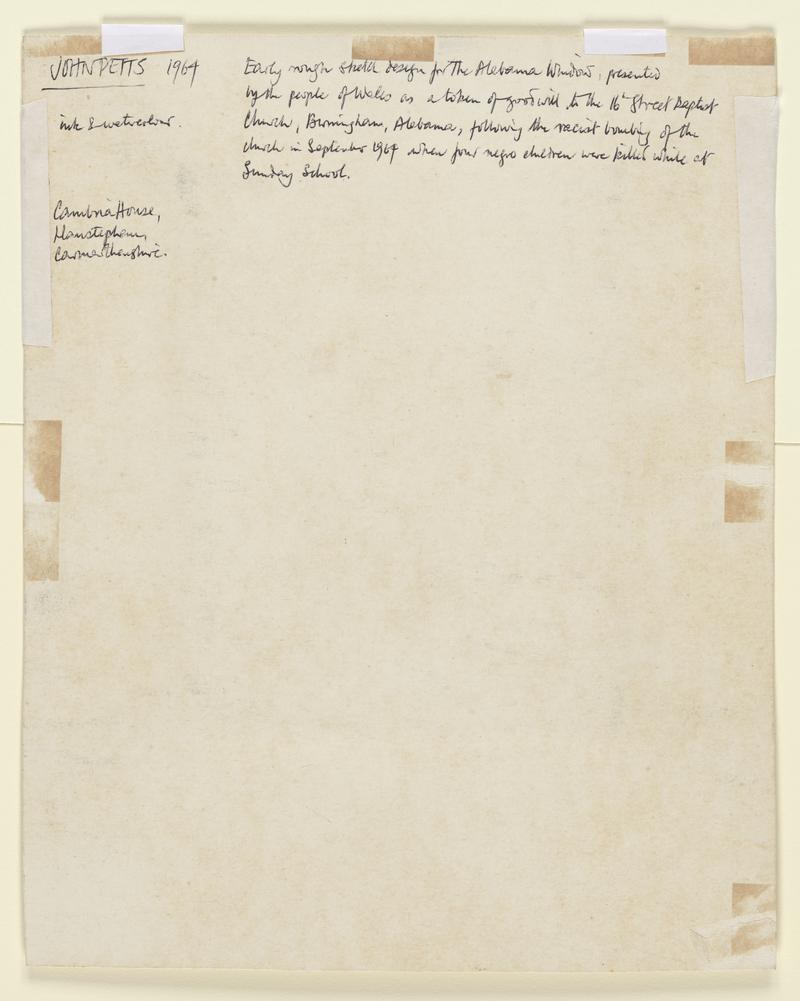 JOHN PETTS 1964
ink & watercolour.
Cambria House,
Llanstephan,
Carmarthenshire.
Early rough sketch design for The Alabama Window, presented
by the people of Wales as a token of goodwill to the 16th Street Baptist
Church, Birmingham, Alabama, following the racist bombing of the
church in September 1964 when four negro children were killed while at
Sunday School.